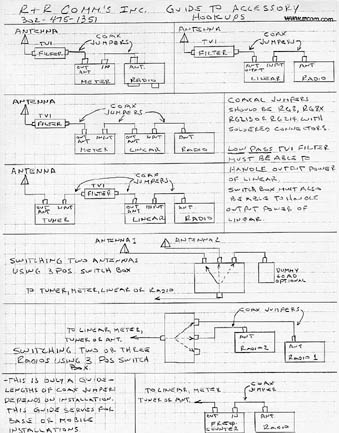 R+R COMM'S INC. GUIDE TO ACCESSORY
302-475-1351 HOOKUPS www.rrcom.com
ANTENNA
TVI
FILTER
COAX
JUMPERS
OUT ANT IN
METER
ANT
RADIO
ANTENNA
TVI
FILTER
COAX
JUMPERS
OUT ANT INPUT
LINEAR
ANT
RADIO
ANTENNA
TVI
FILTER
COAX
JUMPERS
OUT ANT INPUT
METER
OUT ANT INPUT
LINEAR
ANT
RADIO
COAXIAL JUMPERS
SHOULD BE RG8, RG8X
RG213 OR RG214 WITH
SOLDERED CONNECTORS.
LOW PASS TVI FILTER
MUST BE ABLE TO
HANDLE OUTPUT POWER
OF LINEAR.
SWITCH BOX MUST ALSO
BE ABLE TO HANDLE
OUTPUT POWER OF
LINEAR.
ANTENNA
TVI
FILTER
COAX
JUMPERS
OUT ANT INPUT
TUNER
OUT ANT INPUT
LINEAR
ANT
RADIO
ANTENNA 1 ANTENNA 2
SWITCHING TWO ANTENNAS
USING 3 POS SWITCH BOX
TO TUNER, METER, LINEAR OR RADIO
DUMMY
LOAD
OPTIONAL
TO LINEAR, METER,
TUNER OR ANT.
COAX JUMPERS
ANT
RADIO 2
ANT
RADIO 1
SWITCHING TWO OR THREE
RADIOS USING 3 POS SWITCH
BOX.
-THIS IS ONLY A GUIDE-
LENGTHS OF COAX JUMPER
DEPENDS ON INSTALLATION.
THIS GUIDE SERVES FOR
BASE OR MOBILE
INSTALLATIONS.
TO LINEAR, METER
TUNER OR ANT.
COAX
JUMPER
OUT IN
FREQ.
COUNTER
ANT
RADIO